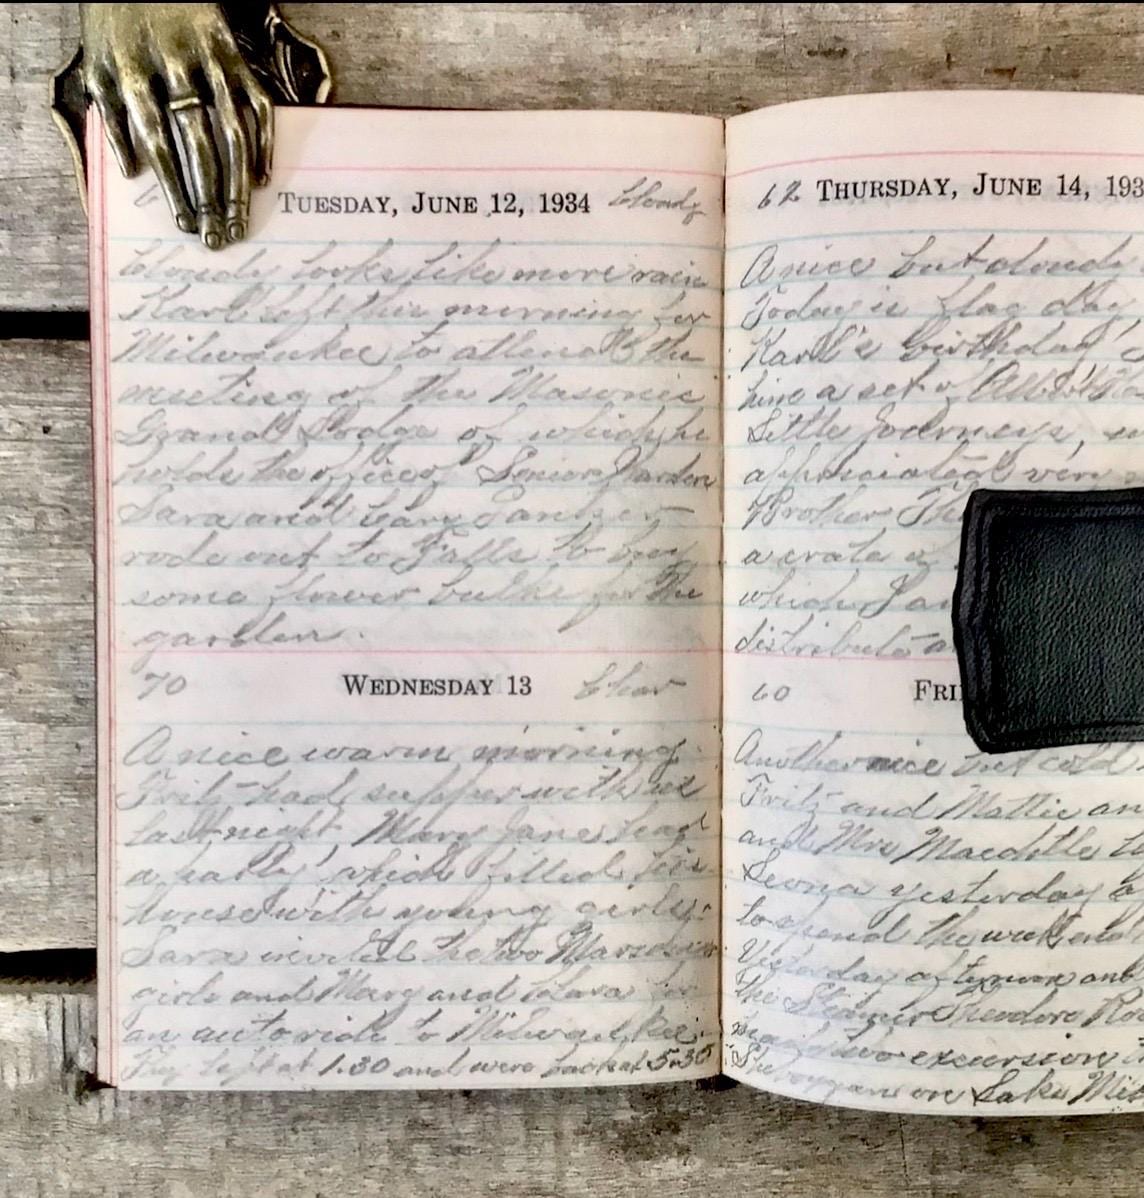 6
TUESDAY, JUNE 12, 1934 Cloudy
Cloudy looks like more rain
Karl left this morning for
Milwaukee to attend the
meeting of the Masonic
Grand Lodge of which he
holds the office of Senior Warden
Sara and
rode out to Falls to buy
some flower bulbs for the
garden.
70
WEDNESDAY 13 Clear
A nice warm morning.
Fritz had supper with us
last night. Mary Jane had
a party which filled
house with young girls.
Sara invited the two
girls and Mary and Clara for
an auto ride to Milwaukee.
They left at 1.30 and were back at 5.30
62 THURSDAY, JUNE 14, 193
A nice but cloudy
Today is flag day
Karl's birthday
him a set of
Little Journeys,
appreciated very
Brother
a crate of
which I
distribute
60 FRI
Another nice but cold
Fritz and Mattie an
and Mrs
Leona yesterday
to spend the week end
Yesterday afternoon
the Steamer Theodore Ro
two excursion
Sheboygan on Lake Mic